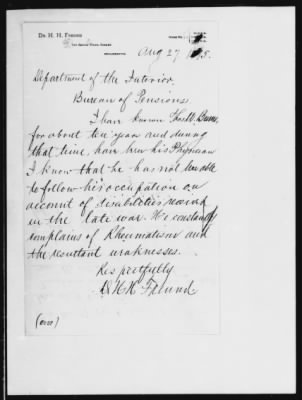 Dr. H. H. Freund
Aug 27
Department of the Interior,
Bureau of Pensions
I have known Thos W. Burns,
for about ten years and during
that time, have been his Physician
I know that he has not been able
to follow his occupation on
account of disibilities received
in the late war. He constantly
complains of Rheumatism and
the resultant weaknesses.
Respectfully
H H Freund
(over)